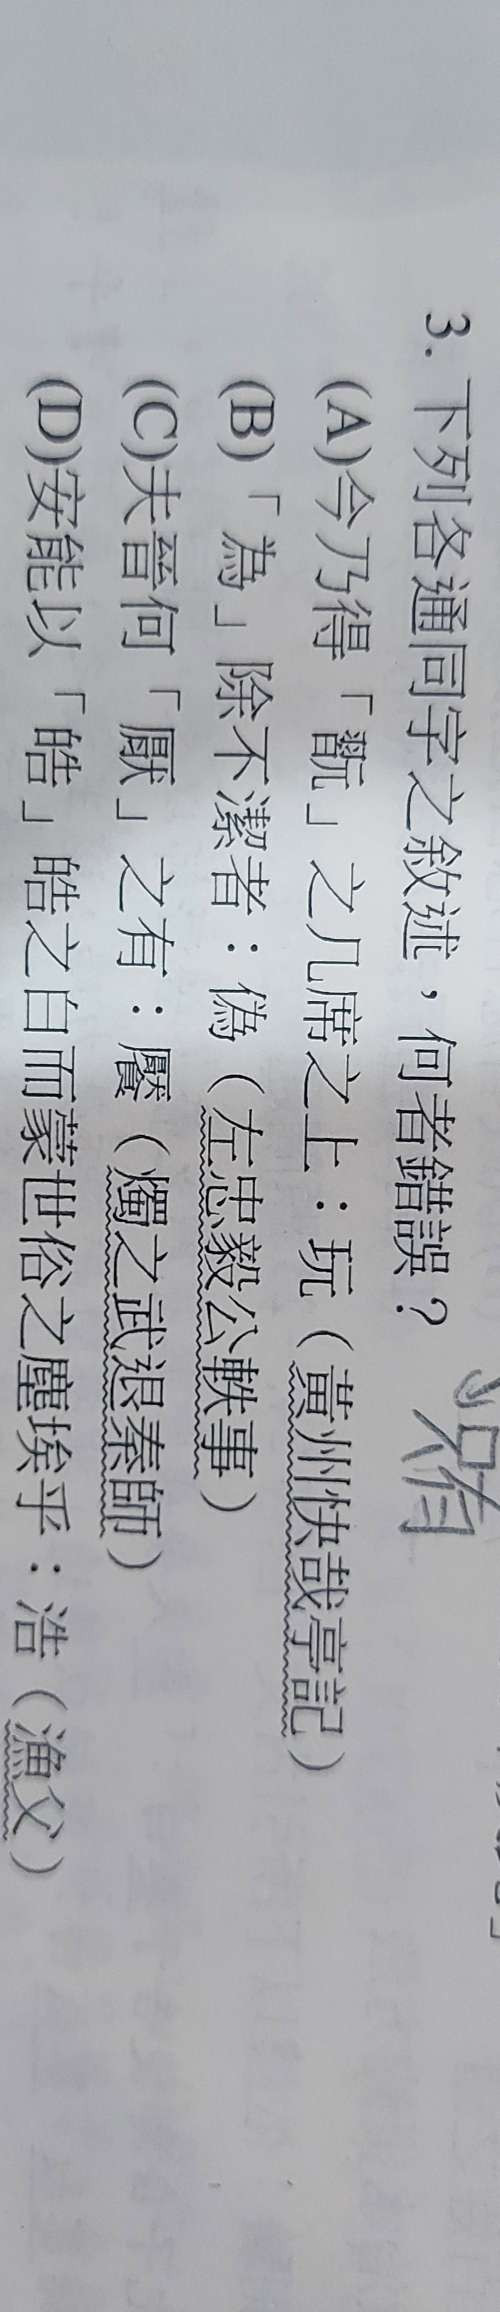 3. 下列各通同字之敘述，何者錯誤？
(A)今乃得「翫」之几席之上：玩（黃州快哉亭記）
(B)「為」除不潔者：偽（左忠毅公軼事）
(C)夫晉何「厭」之有：饜（燭之武退秦師）
(D)安能以「皓」皓之白而蒙世俗之塵埃乎：浩（漁父）
只有